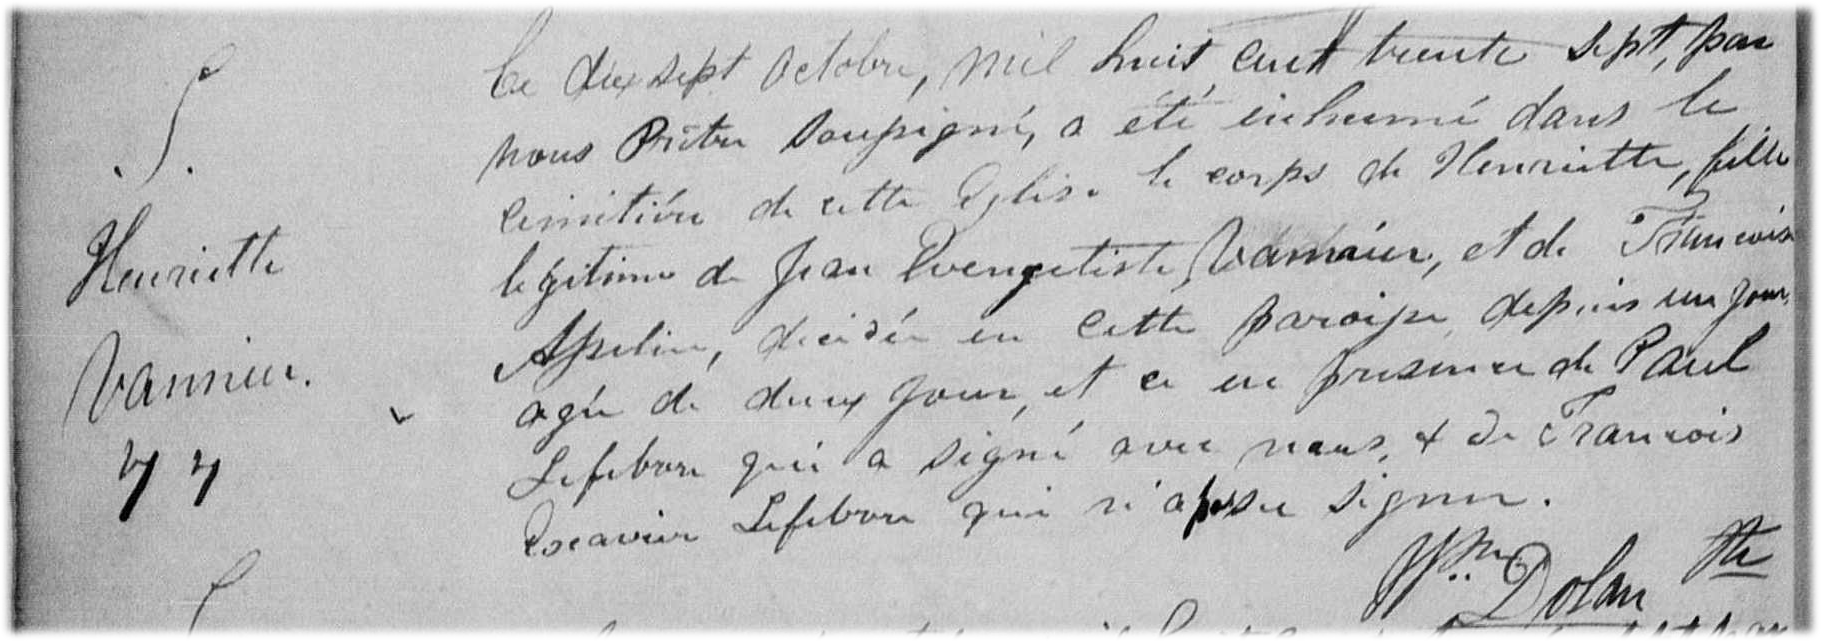 S.
Henriette
Vannier.
77
Ce dix sept Octobre, mil huit cent trente sept, par
nous Prêtre Soupigné, a été inhumé dans le
cimitiére de cette Eglise le corps de Henriette, fille
légitime de Jean Evengetiste Vannier, et de Francoise
Asselin, dicidée en cette paroisse depuis un jour,
agée de deux jour, et ce en presence de Paul
Lefebvre qui a signé avec nous, & de Francois
Exavier Lefebvre qui n'a pas su signer.
Wm Dolan Ptre